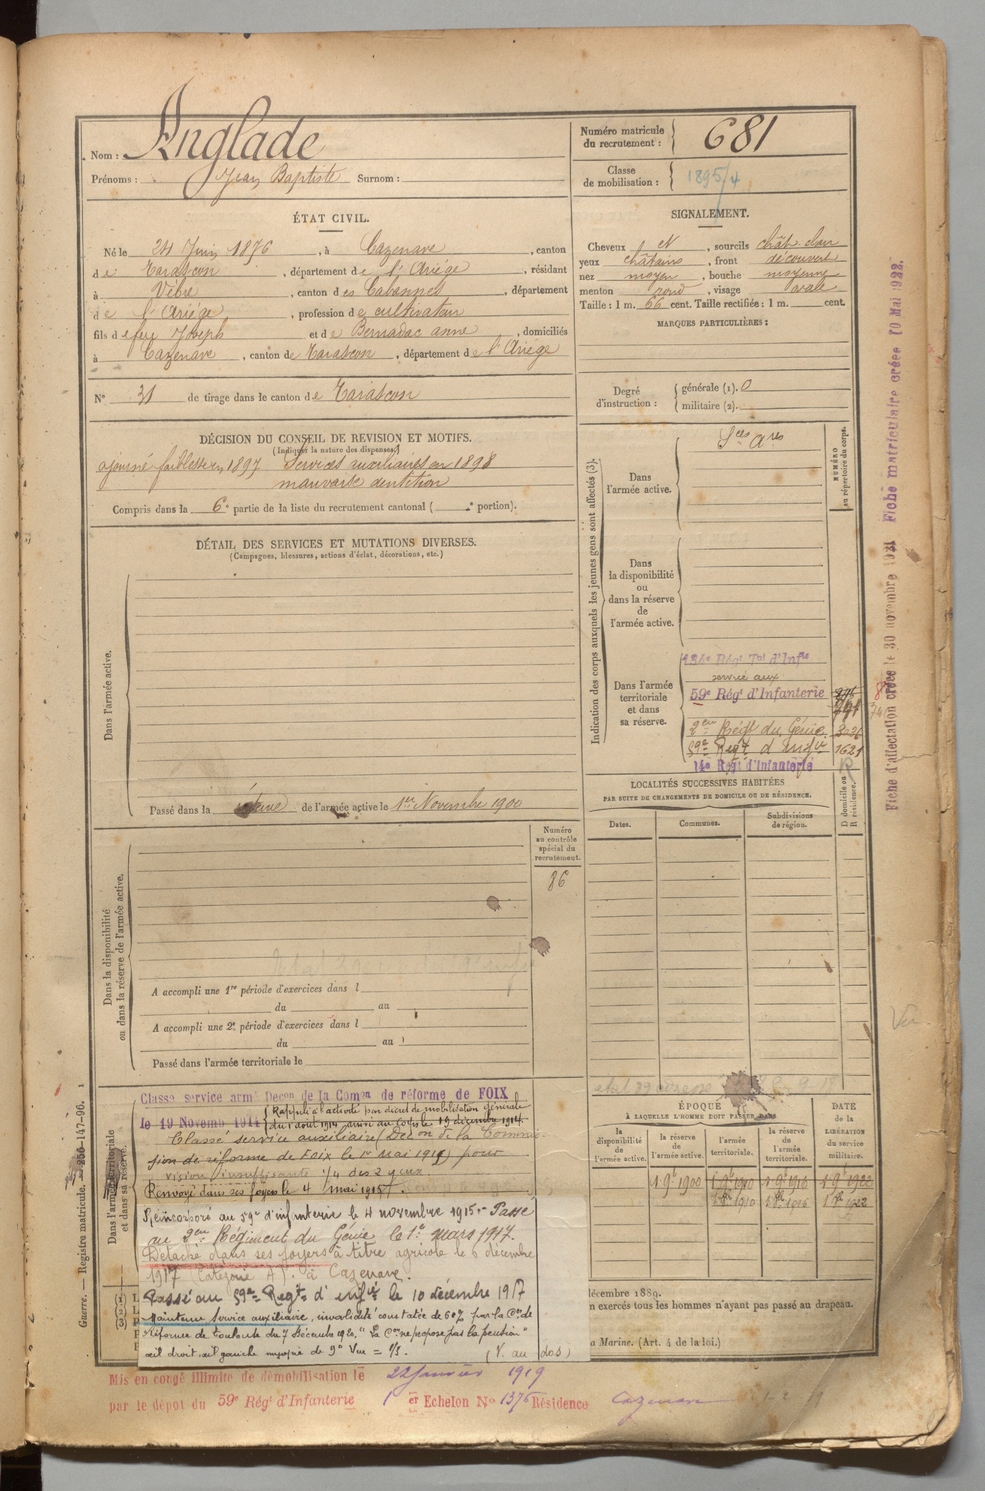 Nom : Anglade
Prénoms : Jean Baptiste Surnom :
Numéro matricule du recrutement : 681
Classe de mobilisation : 1895/4
ÉTAT CIVIL.
Né le 24 Juin 1876, à Cazenave, canton
de Tarascon, département de l'Ariége, résidant
à Vèbre, canton des Cabannes, département
de l'Ariége, profession de cultivateur
fils de feu Joseph et de Bernadac anne, domiciliés
à Cazenave, canton de Tarascon, département de l'Ariége
N° 31 de tirage dans le canton de Tarascon
SIGNALEMENT.
Cheveux et, sourcils chât. clair
yeux châtains, front découvert
nez moyen, bouche moyenne
menton rond, visage ovale
Taille : 1 m. 66 cent. Taille rectifiée : 1 m. cent.
MARQUES PARTICULIÈRES :
Degré d'instruction : générale (1). 0
militaire (2).
DÉCISION DU CONSEIL DE REVISION ET MOTIFS.
(Indiquer la nature des dispenses.)
ajourné faiblesse en 1897 Services auxiliaires en 1898
mauvaise dentition
Compris dans la 6e partie de la liste du recrutement cantonal ( e portion).
DÉTAIL DES SERVICES ET MUTATIONS DIVERSES.
(Campagnes, blessures, actions d'éclat, décorations, etc.)
Dans l'armée active.
Passé dans la réserve de l'armée active le 1er Novembre 1900
Indication des corps auxquels les jeunes gens sont affectés (3).
NUMÉRO au répertoire du corps.
Dans l'armée active.
Sces Ares
Dans la disponibilité ou dans la réserve de l'armée active.
Dans l'armée territoriale et dans sa réserve.
134e Régt Tal d'Infie
service aux
59e Régt d'Infanterie
2eme Régt du Génie
59e Regt d'infie 1621
14e Regt d'Infanterie
LOCALITÉS SUCCESSIVES HABITÉES
PAR SUITE DE CHANGEMENTS DE DOMICILE OU DE RÉSIDENCE.
Dates.
Communes.
Subdivisions de région.
D domicile ou R résidence.
Numéro au contrôle spécial du recrutement.
86
Dans la disponibilité ou dans la réserve de l'armée active.
A accompli une 1re période d'exercices dans l
du au
A accompli une 2e période d'exercices dans l
du au
Passé dans l'armée territoriale le
Dans l'armée territoriale et dans sa réserve.
Classé service armé Decon de la Comon de réforme de FOIX
le 19 Novemb 1914 Rappelé à l'activité par décret de mobilisation générale
du 1 aout 1914 arrivé au corps le 19 décembre 1914.
Classé service auxiliaire (Décon de la Commis-
sion de réforme de Foix le 1er Mai 1915) pour
vision insuffisante 1/4 des 2 yeux
Renvoyé dans ses foyers le 4 mai 1915.
Réincorporé au 59e d'infanterie le 4 novembre 1915. Passé
au 2eme Régiment du Génie le 1er mars 1917.
Détaché dans ses foyers à titre agricole le 6 décembre
1917 (Catégorie A) à Cazenave.
Passé au 59e Regt d'infie le 10 décembre 1917
Maintenu service auxiliaire, invalidité constatée de 60% par la Con de
réforme de Toulouse du 7 Décembre 1920. "La Con ne propose pas la pension"
œil droit. œil gauche myopie de 9e Vue = 1/3.
(V. au dos)
ÉPOQUE
À LAQUELLE L'HOMME DOIT PASSER DANS
DATE de la LIBÉRATION du service militaire.
la disponibilité de l'armée active.
la réserve de l'armée active.
l'armée territoriale.
la réserve de l'armée territoriale.
1 9bre 1900 1 9bre 1910 1 9bre 1916 1 9bre 1922
1 8bre 1922
décembre 1889.
n exercés tous les hommes n'ayant pas passé au drapeau.
a Marine. (Art. 4 de la loi.)
Mis en congé illimité de démobilisation le 22 Janvier 1919
par le dépôt du 59e Régt d'Infanterie 1er Echelon No 1376 Résidence Cazenave
Guerre. — Registre matricule. 147-96.
Fiche d'affectation créée le 30 novembre 1921 Fiche matriculaire créée 10 Mai 1922.